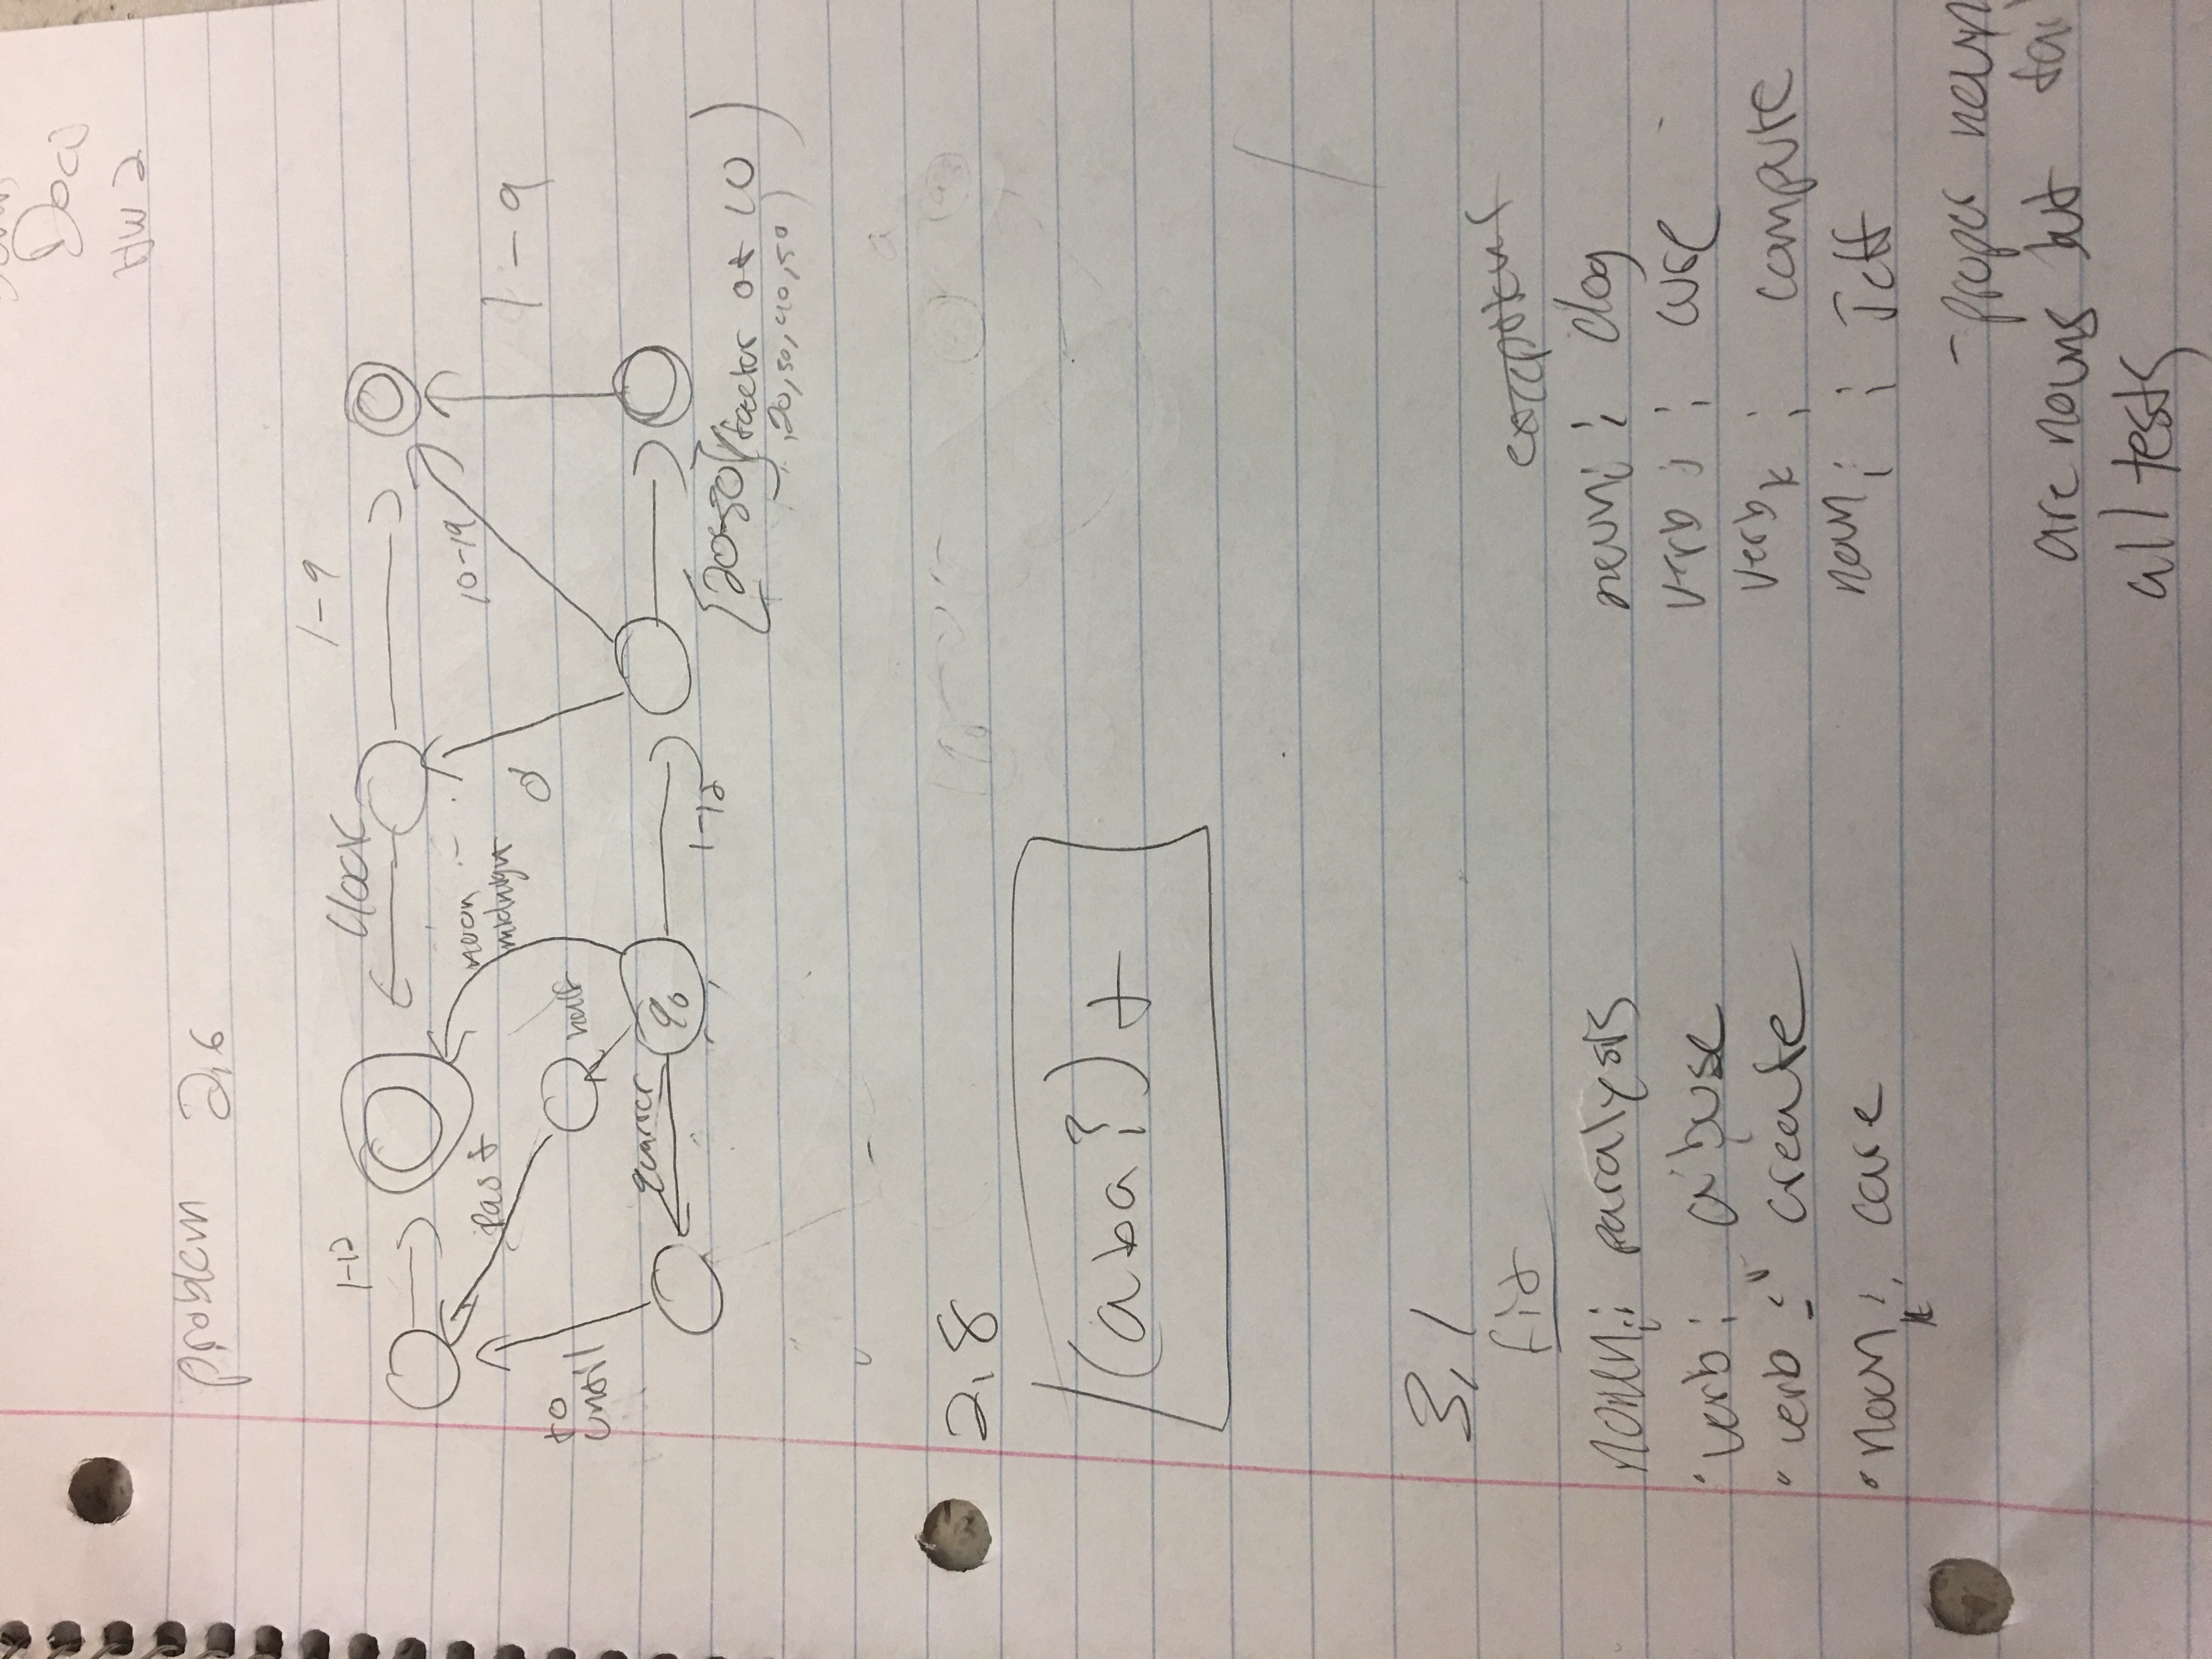 Docs
HW 2
problem 2.6
1-12
Clock
1-9
past
noon
midnight
10-19
1-9
to
until
o'
half
quarter
q0
1-12
[20-50] (factor of 10
20, 30, 40, 50)
2.8
/(aba?)+
3.1
fit
noun: paralysis
verb: abuse
verb: create
noun k: care
noun i: dog
verb j:
verb k: compute
noun i: Jeff
- proper noun
are nouns but
all tests